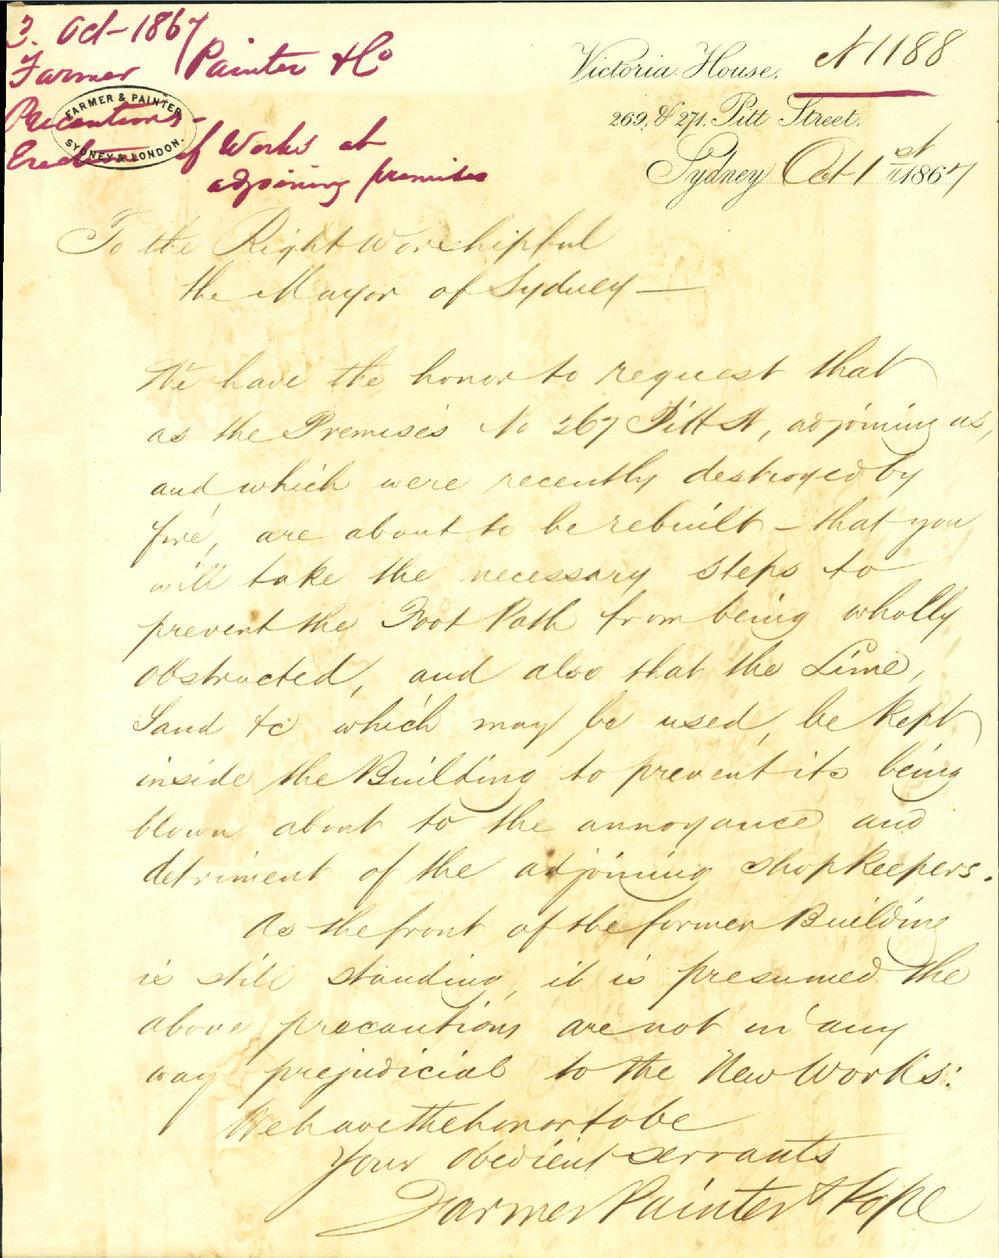 3. Oct- 1867
Farmer Painter & Co
Precautions-
Erection of Works at
adjoining premises
FARMER & PAINTER
SYDNEY & LONDON.
Victoria House.
No 1188
269, & 271, Pitt Street.
Sydney Oct 1st 1867
To the Right Worshipful
the Mayor of Sydney —
We have the honor to request that
as the Premises No 267 Pitt St, adjoining us,
and which were recently destroyed by
fire, are about to be rebuilt - that you
will take the necessary steps to
prevent the Foot Path from being wholly
obstructed, and also that the Lime,
Sand &c which may be used, be kept
inside the Building to prevent its being
blown about to the annoyance and
detriment of the adjoining shopkeepers.
As the front of the former Building
is still standing, it is presumed the
above precautions are not in any
way prejudicial to the New Works:
We have the honor to be
Your obedient servants
Farmer Painter & Pope